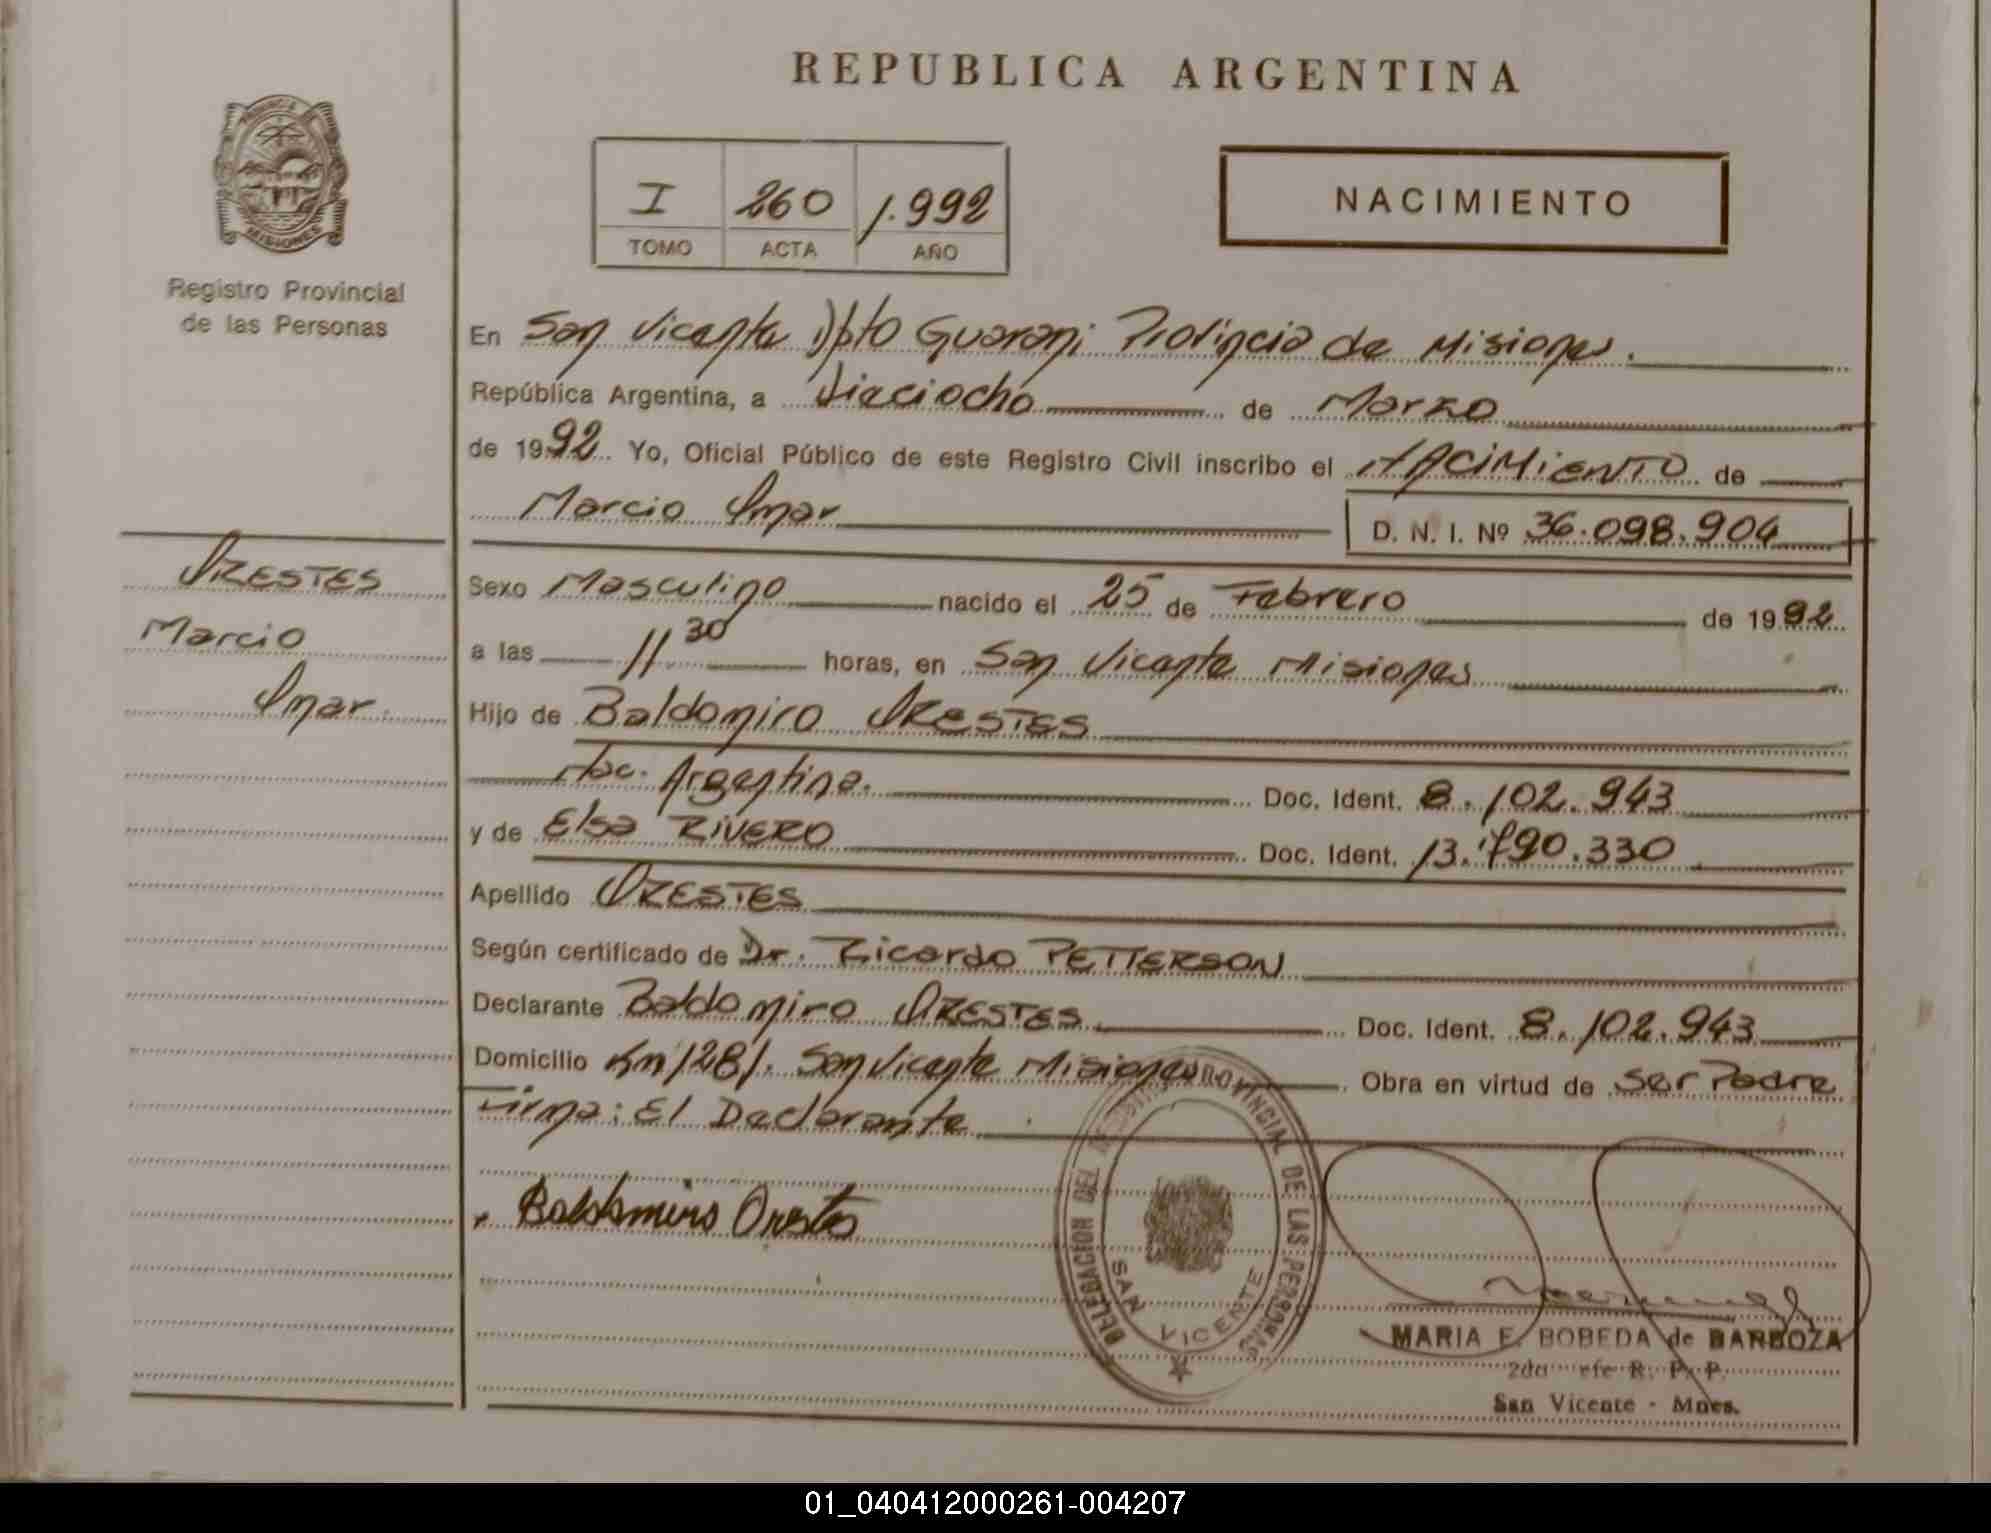 REPUBLICA ARGENTINA
PROVINCIA DE
MISIONES
Registro Provincial
de las Personas
I 260 1.992
TOMO ACTA AÑO
NACIMIENTO
En San Vicente Dpto Guarani Provincia de Misiones.
República Argentina, a Dieciocho de Marzo
de 1992 Yo, Oficial Público de este Registro Civil inscribo el NACIMIENTO de
Marcio Omar D. N. I. Nº 36.098.904
ORESTES
Marcio
Omar
Sexo Masculino nacido el 25 de Febrero de 1992
a las 11 30 horas, en San Vicente Misiones
Hijo de Baldomiro ORESTES
Nac. Argentina. Doc. Ident. 8.102.943
y de Elsa RIVERO Doc. Ident. 13.790.330
Apellido ORESTES
Según certificado de Dr. Ricardo PETTERSON
Declarante Baldomiro ORESTES Doc. Ident. 8.102.943
Domicilio Km 1281. San Vicente Misiones Obra en virtud de Ser Padre
Firma: El Declarante
Baldomiro Orestes
DELEGACION DEL REGISTRO PROVINCIAL DE LAS PERSONAS
SAN VICENTE
MARIA E. BOBEDA de BARBOZA
2da R. P. P.
San Vicente - Mnes.
01_040412000261-004207